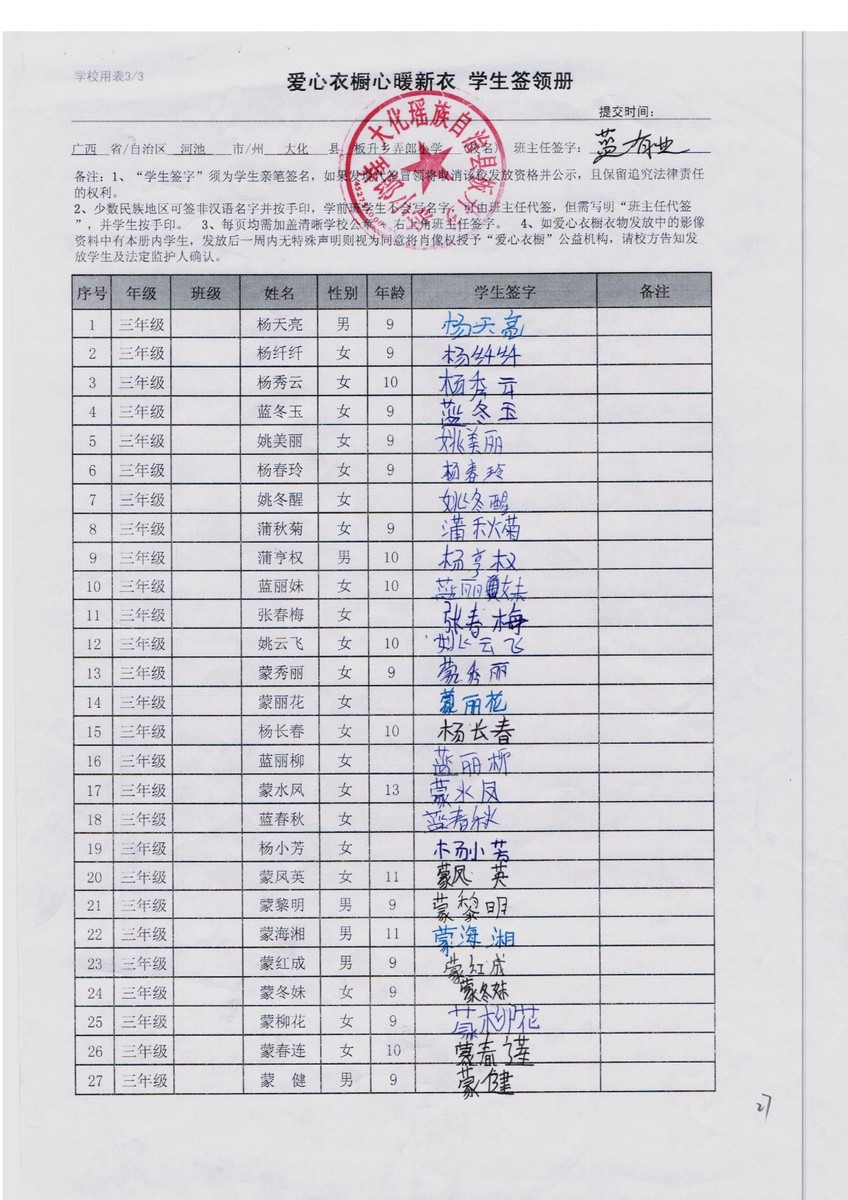 学校用表3/3
爱心衣橱心暖新衣 学生签领册
提交时间：
广西 省/自治区 河池 市/州 大化 县 板升乡弄郎小学 （校名） 班主任签字：
备注：1、“学生签字”须为学生亲笔签名，如果发现代签冒领将取消该校发放资格并公示，且保留追究法律责任
的权利。
2、少数民族地区可签非汉语名字并按手印，学前班学生不会写名字，可由班主任代签，但需写明“班主任代签
”，并学生按手印。 3、每页均需加盖清晰学校公章，右上角班主任签字。 4、如爱心衣橱衣物发放中的影像
资料中有本册内学生，发放后一周内无特殊声明则视为同意将肖像权授予“爱心衣橱”公益机构，请校方告知发
放学生及法定监护人确认。
序号 年级 班级 姓名 性别 年龄 学生签字 备注
1 三年级 杨天亮 男 9 杨天亮
2 三年级 杨纤纤 女 9 杨纤纤
3 三年级 杨秀云 女 10 杨秀云
4 三年级 蓝冬玉 女 9 蓝冬玉
5 三年级 姚美丽 女 9 姚美丽
6 三年级 杨春玲 女 9 杨春玲
7 三年级 姚冬醒 女 姚冬醒
8 三年级 蒲秋菊 女 9 蒲秋菊
9 三年级 蒲亨权 男 10 杨亨权
10 三年级 蓝丽妹 女 10 蓝丽妹
11 三年级 张春梅 女 张春梅
12 三年级 姚云飞 女 10 姚云飞
13 三年级 蒙秀丽 女 9 蒙秀丽
14 三年级 蒙丽花 女 蒙丽花
15 三年级 杨长春 女 10 杨长春
16 三年级 蓝丽柳 女 蓝丽柳
17 三年级 蒙水凤 女 13 蒙水凤
18 三年级 蓝春秋 女 蓝春秋
19 三年级 杨小芳 女 杨小芳
20 三年级 蒙凤英 女 11 蒙凤英
21 三年级 蒙黎明 男 9 蒙黎明
22 三年级 蒙海湘 男 11 蒙海湘
23 三年级 蒙红成 男 9 蒙红成
24 三年级 蒙冬妹 女 9 蒙冬妹
25 三年级 蒙柳花 女 9 蒙柳花
26 三年级 蒙春连 女 10 蒙春莲
27 三年级 蒙 健 男 9 蒙健
27